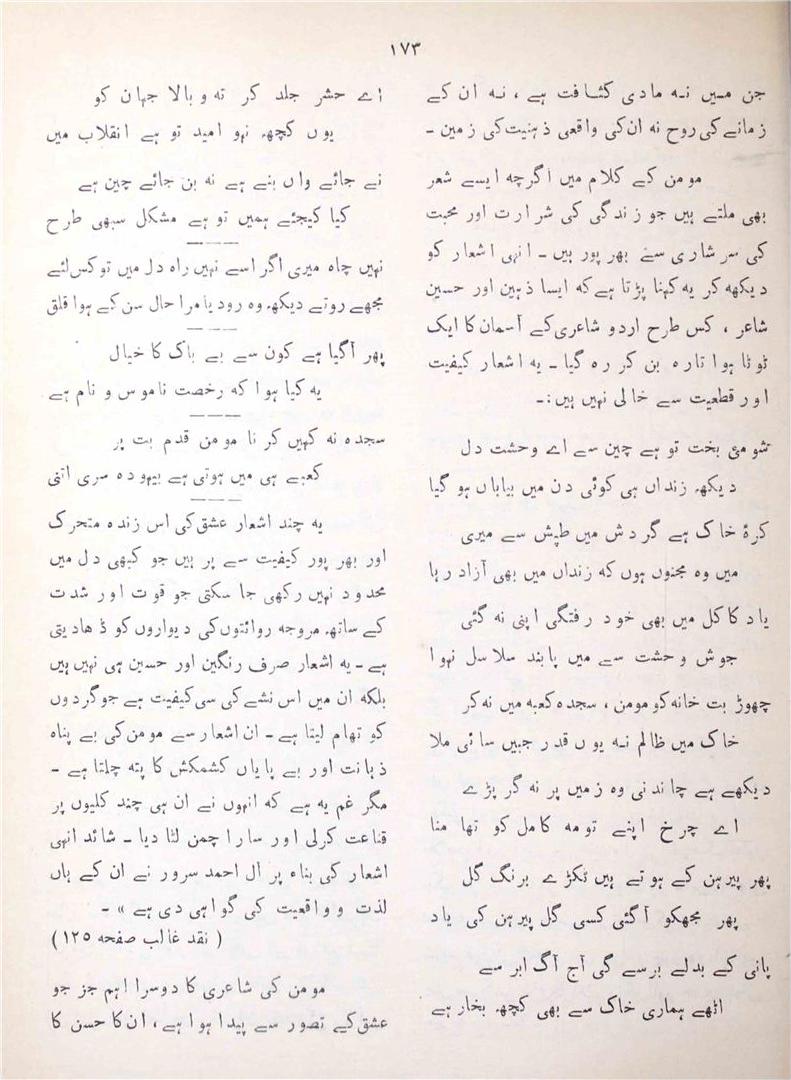 ۱۷۳
جن میں نہ مادی کثافت ہے ، نہ ان کے
زمانے کی روح نہ ان کی واقعی ذہنیت کی زمین ۔
مومن کے کلام میں اگرچہ ایسے شعر
بھی ملتے ہیں جو زندگی کی شرارت اور محبت
کی سرشاری سے بھر پور ہیں ۔ انہی اشعار کو
دیکھ کر یہ کہنا پڑتا ہے کہ ایسا ذہین اور حسین
شاعر ، کس طرح اردو شاعری کے آسمان کا ایک
ٹوٹا ہوا تارہ بن کر رہ گیا ۔ یہ اشعار کیفیت
اور قطعیت سے خالی نہیں ہیں :۔
شومئ بخت تو ہے چین سے اے وحشت دل
دیکھ زنداں ہی کوئی دن میں بیاباں ہو گیا
کرۂ خاک ہے گردش میں طپش سے میری
میں وہ مجنوں ہوں کہ زنداں میں بھی آزاد رہا
یاد کاکل میں بھی خود رفتگی اپنی نہ گئی
جوش وحشت سے میں پابند سلاسل نہوا
چھوڑ بت خانہ کو مومن ، سجدہ کعبہ میں نہ کر
خاک میں ظالم نہ یوں قدر جبیں سائی ملا
دیکھے ہے چاندنی وہ زمیں پر نہ گر پڑے
اے چرخ اپنے تو مہ کامل کو تھامنا
پھر پیرہن کے ہوتے ہیں ٹکڑے برنگ گل
پھر مجھکو آگئی کسی گل پیرہن کی یاد
پانی کے بدلے برسے گی آج آگ ابر سے
اٹھے ہماری خاک سے بھی کچھ بخار ہے
اے حشر جلد کر تہ و بالا جہان کو
یوں کچھ نہو امید تو ہے انقلاب میں
نے جائے واں بنے ہے نہ بن جائے چین ہے
کیا کیجئے ہمیں تو ہے مشکل سبھی طرح
نہیں چاہ میری اگر اسے نہیں راہ دل میں تو کس لئے
مجھے روتے دیکھ وہ رودیا مرا حال سن کے ہوا قلق
پھر آگیا ہے کون سے بے باک کا خیال
یہ کیا ہوا کہ رخصت ناموس و نام ہے
سجدہ نہ کہیں کرنا مومن قدم بت پر
کعبے ہی میں ہوتی ہے بیہودہ سری اتنی
یہ چند اشعار عشق کی اس زندہ متحرک
اور بھر پور کیفیت سے پر ہیں جو کبھی دل میں
محدود نہیں رکھی جا سکتی جو قوت اور شدت
کے ساتھ مروجہ روائتوں کی دیواروں کو ڈھادیتی
ہے ۔ یہ اشعار صرف رنگین اور حسین ہی نہیں ہیں
بلکہ ان میں اس نشے کی سی کیفیت ہے جو گردوں
کو تھام لیتا ہے ۔ ان اشعار سے مومن کی بے پناہ
ذہانت اور بے پایاں کشمکش کا پتہ چلتا ہے ۔
مگر غم یہ ہے کہ انہوں نے ان ہی چند کلیوں پر
قناعت کرلی اور سارا چمن لٹا دیا ۔ شائد انہی
اشعار کی بناء پر ال احمد سرور نے ان کے ہاں
لذت و واقعیت کی گواہی دی ہے » ۔
( نقد غالب صفحه ۱۲۵ )
مومن کی شاعری کا دوسرا اہم جز جو
عشق کے تصور سے پیدا ہوا ہے ، ان کا حسن کا